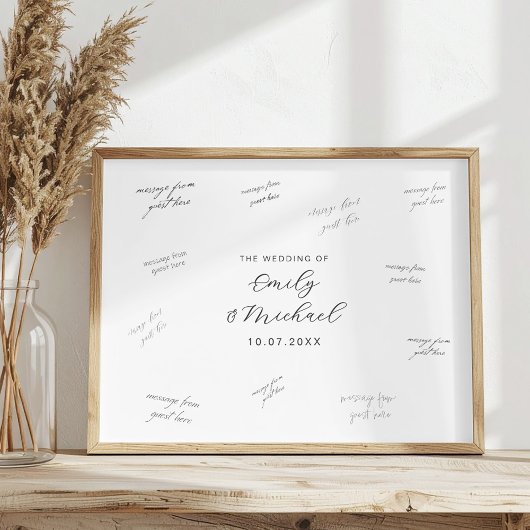 message from
guest here
message from
guest here
message from
guest here
message from
guest here
message from
guest here
THE WEDDING OF
Emily
& Michael
10.07.20XX
message from
guest here
message from
guest here
message from
guest here
message from
guest here
message from
guest here
message from
guest here